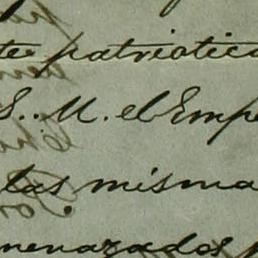 te patriotica
S. M. el Empe
las misma
menazados p